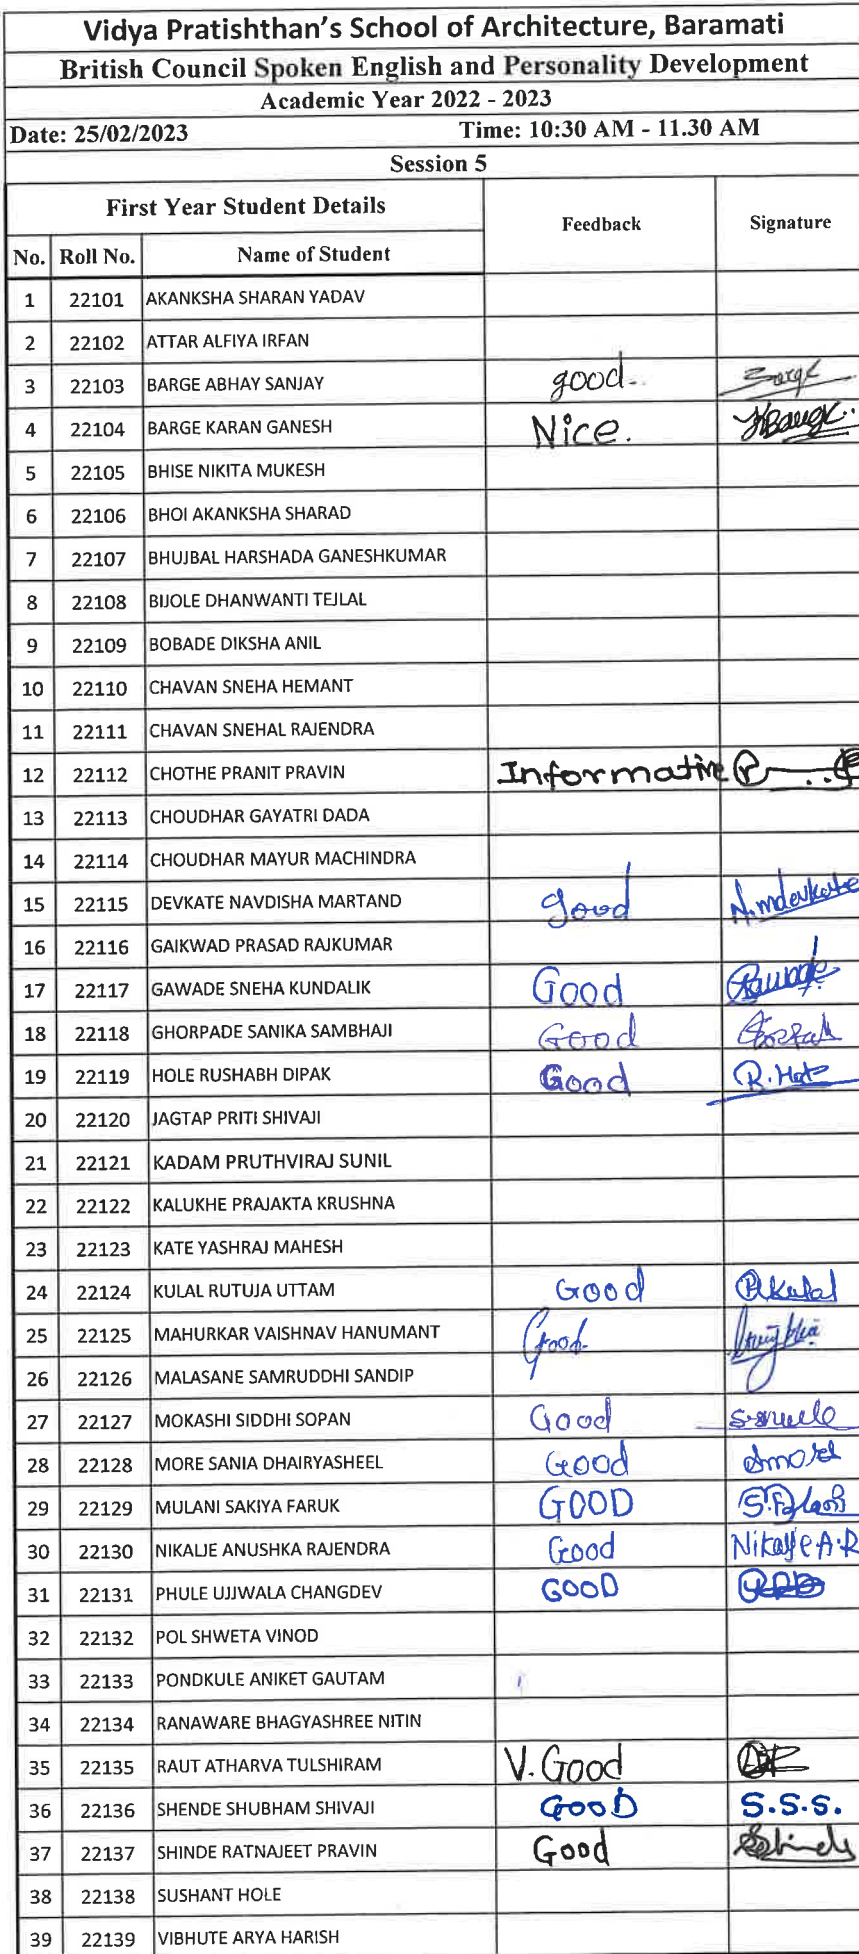 Vidya Pratishthan's School of Architecture, Baramati
British Council Spoken English and Personality Development
Academic Year 2022 - 2023
Date: 25/02/2023 Time: 10:30 AM - 11.30 AM
Session 5
First Year Student Details Feedback Signature
No. Roll No. Name of Student
1 22101 AKANKSHA SHARAN YADAV
2 22102 ATTAR ALFIYA IRFAN
3 22103 BARGE ABHAY SANJAY good.
4 22104 BARGE KARAN GANESH Nice.
5 22105 BHISE NIKITA MUKESH
6 22106 BHOI AKANKSHA SHARAD
7 22107 BHUJBAL HARSHADA GANESHKUMAR
8 22108 BIJOLE DHANWANTI TEJLAL
9 22109 BOBADE DIKSHA ANIL
10 22110 CHAVAN SNEHA HEMANT
11 22111 CHAVAN SNEHAL RAJENDRA
12 22112 CHOTHE PRANIT PRAVIN Informative
13 22113 CHOUDHAR GAYATRI DADA
14 22114 CHOUDHAR MAYUR MACHINDRA
15 22115 DEVKATE NAVDISHA MARTAND good N.mdevkate
16 22116 GAIKWAD PRASAD RAJKUMAR
17 22117 GAWADE SNEHA KUNDALIK Good
18 22118 GHORPADE SANIKA SAMBHAJI Good
19 22119 HOLE RUSHABH DIPAK Good
20 22120 JAGTAP PRITI SHIVAJI
21 22121 KADAM PRUTHVIRAJ SUNIL
22 22122 KALUKHE PRAJAKTA KRUSHNA
23 22123 KATE YASHRAJ MAHESH
24 22124 KULAL RUTUJA UTTAM Good
25 22125 MAHURKAR VAISHNAV HANUMANT Good
26 22126 MALASANE SAMRUDDHI SANDIP
27 22127 MOKASHI SIDDHI SOPAN Good
28 22128 MORE SANIA DHAIRYASHEEL Good
29 22129 MULANI SAKIYA FARUK GOOD
30 22130 NIKALJE ANUSHKA RAJENDRA Good Nikalje A.R
31 22131 PHULE UJJWALA CHANGDEV GOOD
32 22132 POL SHWETA VINOD
33 22133 PONDKULE ANIKET GAUTAM
34 22134 RANAWARE BHAGYASHREE NITIN
35 22135 RAUT ATHARVA TULSHIRAM V. Good
36 22136 SHENDE SHUBHAM SHIVAJI GOOD S.S.S.
37 22137 SHINDE RATNAJEET PRAVIN Good
38 22138 SUSHANT HOLE
39 22139 VIBHUTE ARYA HARISH